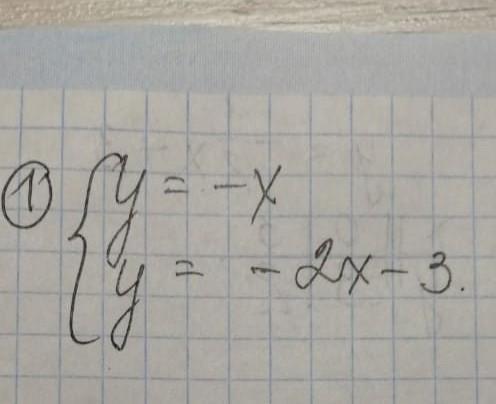 ① { y = -x
y = -2x - 3.